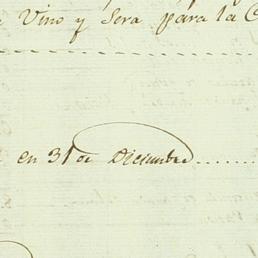 Vino y Sera para la
en 31 de Diciembre